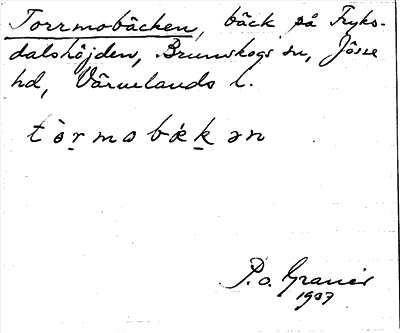 Torrmobäcken, bäck på Fryks-
dalshöjden, Brunskogs sn, Jösse
hd, Värmlands l.
tòrmobækən
P. o. Graner
1907